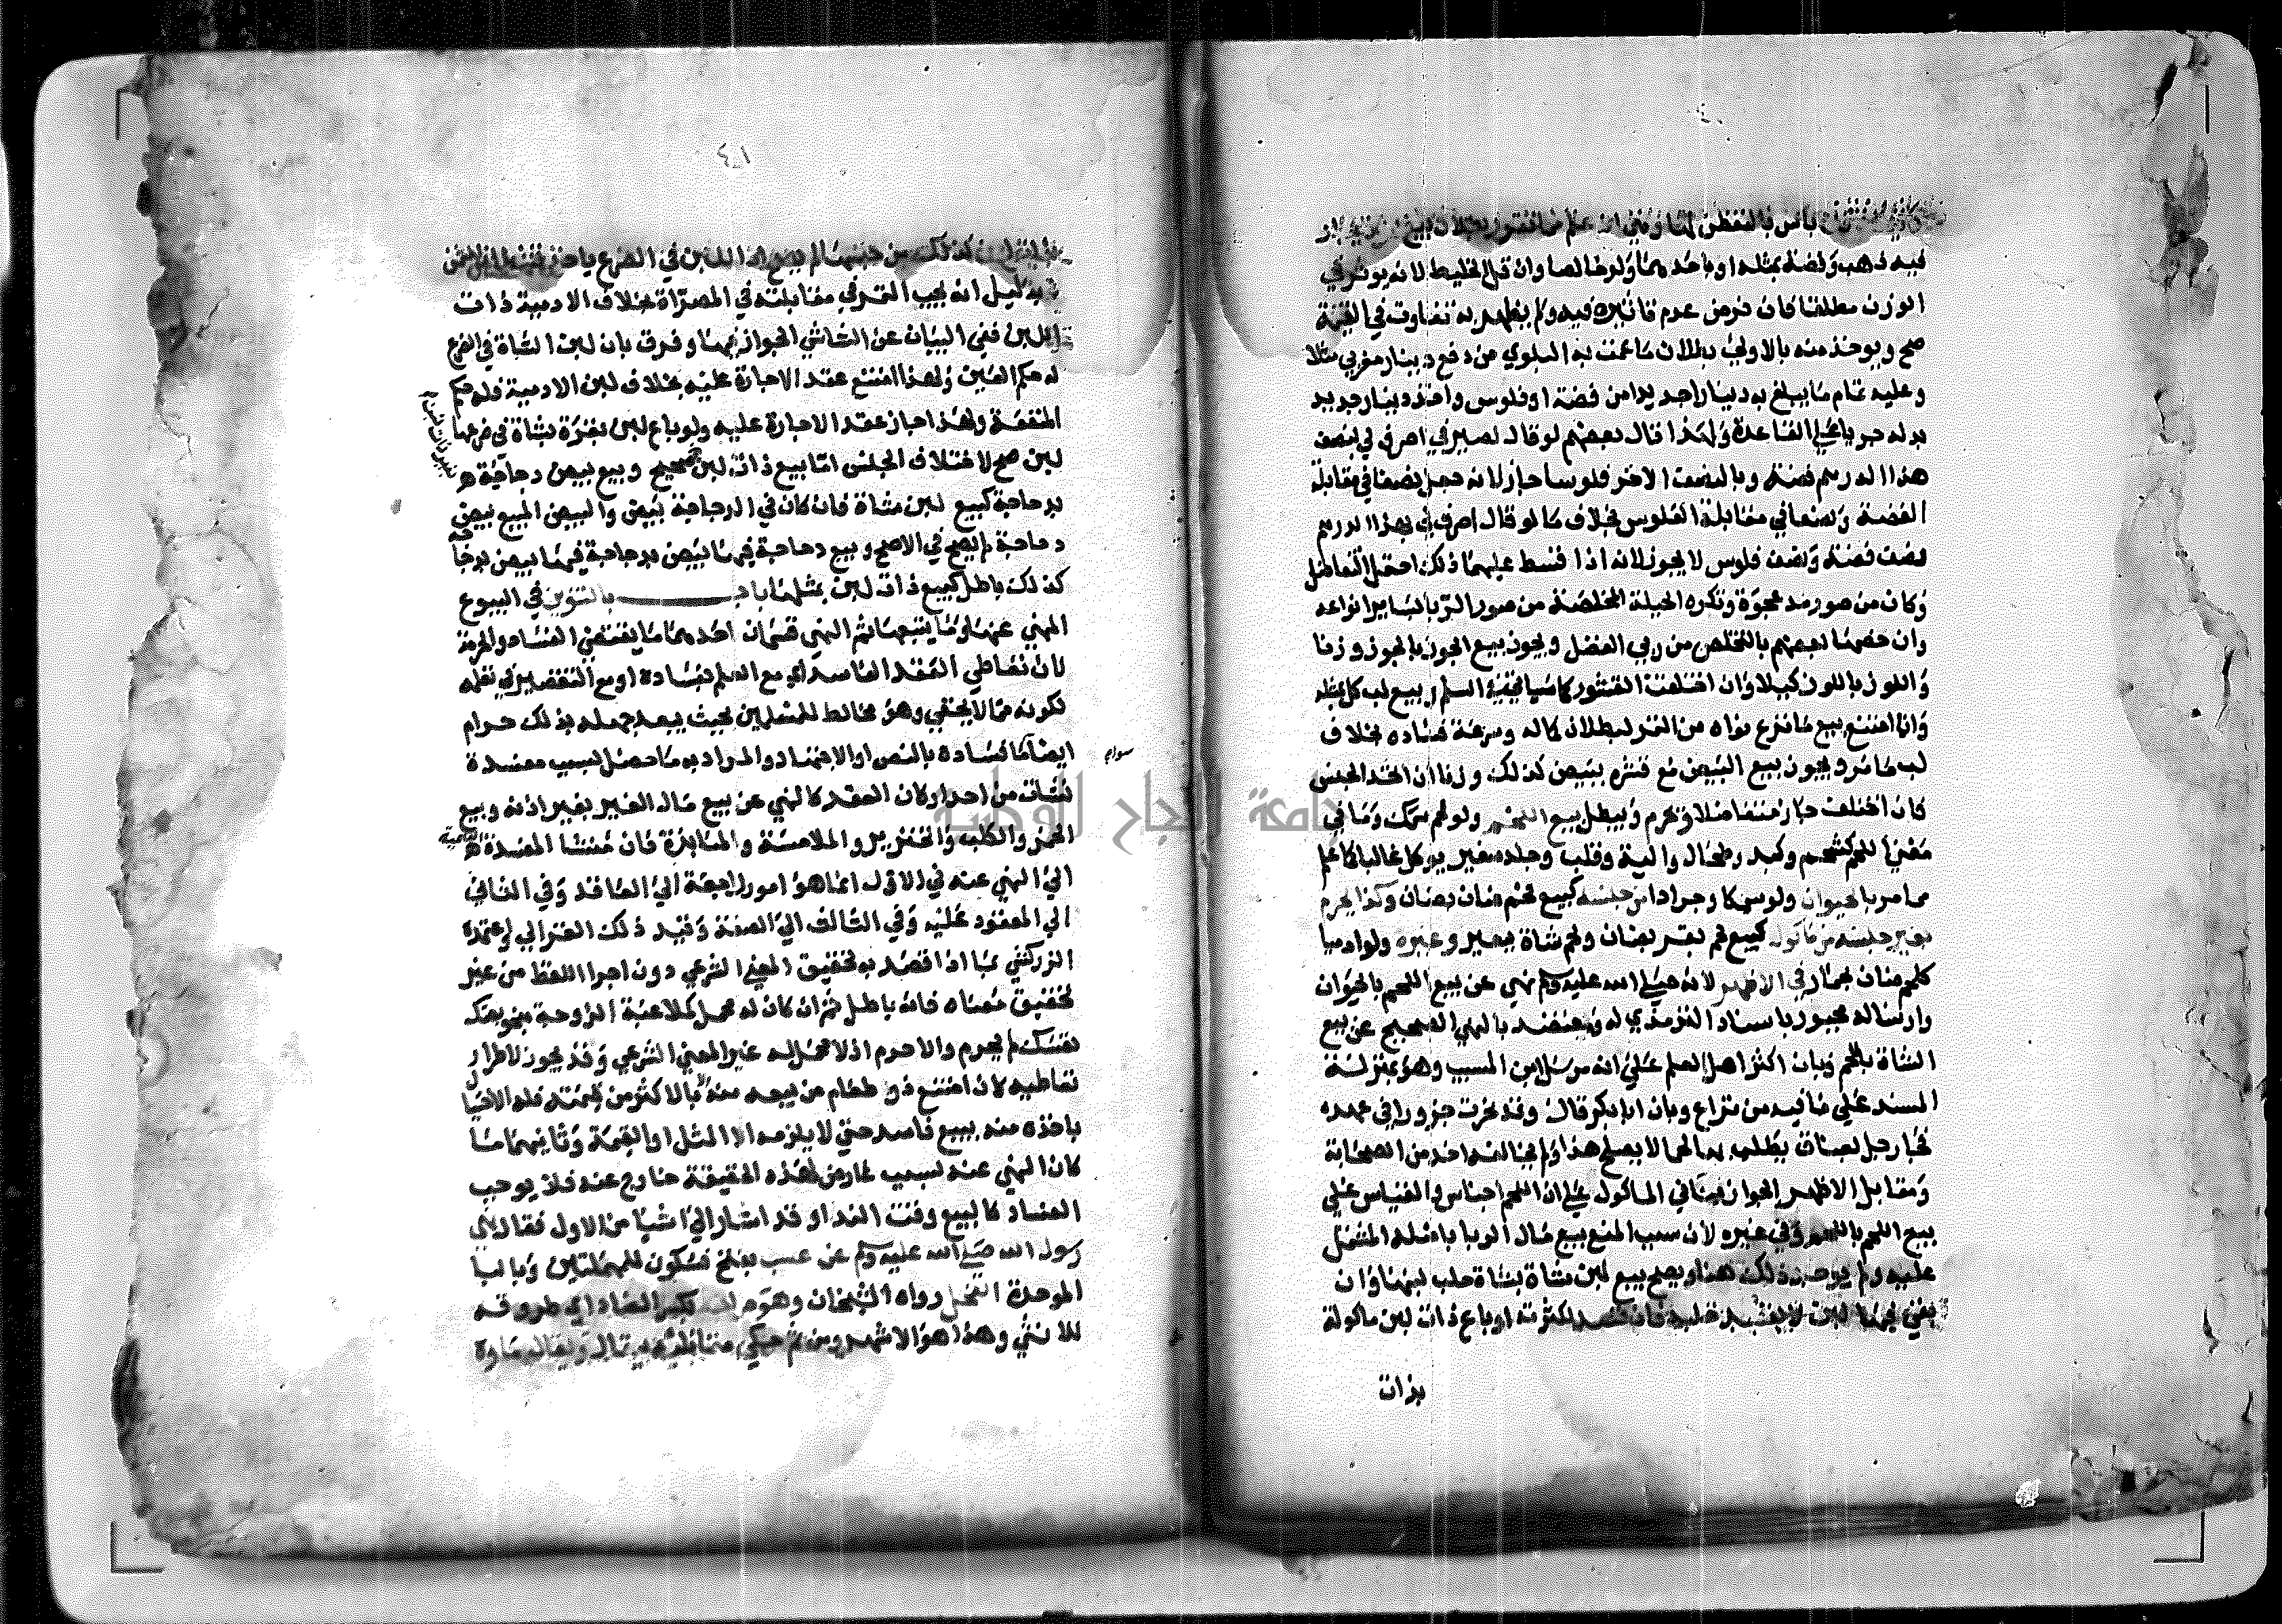 بأس بالنقص لهما وفي انه علم مما تقرر بطلان بيع
فيه ذهب وفضة بمثله او باحدهما ولو خالصا وان قل الخليط لانه يوثر في
الوزن مطلقا فان فرض عدم تاثيره فيه ولم يظهر به تفاوت في القيمة
صح ويوخذ منه بالاولى بطلان ما عمت به البلوي من دفع دينار مغربي مثلا
وعليه تمام ما يبلغ به دينارا جديدا من فضة او فلوس واخذ دينار جديد
بدله جريا على القاعدة ولهذا قال بعضهم لو قال لصيرفي اصرف لي بنصف
هذا الدرهم فضة وبالنصف الاخر فلوسا جاز لانه جعل نصفا في مقابلة
الفضة ونصفا في مقابلة الفلوس بخلاف ما لو قال اصرف لي بهذا الدرهم
نصف فضة ونصف فلوس لا يجوز لانه اذا قسط عليهما ذلك احتمل التفاضل
وكان من صور مد عجوة وتكره الحيلة المخلصة من صور الربا بساير انواعه
وان خصها بعضهم بالتخلص من ربي الفضل ويجوز بيع الجوز بالجوز وزنا
واللوز باللوز كيلا وان اختلفت القشور كما سياتي في السلم وبيع لب كل بمثله
وانما امتنع بيع ما نزع نواه من التمر لبطلان كماله وسرعة فساده بخلاف
لب ما مر ويجوز بيع البيض مع قشره ببيض كذلك وزنا ان اتحد الجنس
فان اختلف جاز متفاضلا وتحرم ويبطل بيع اللحم ولو لحم سمك وما في
معني اللحم كشحم وكبد وطحال والية وقلب وجلد صغير يوكل غالبا كما علم
مما مر بالحيوان ولو سمكا وجرادا من جنسه كبيع لحم ضان بضان وكذا يحرم
بغير جنسه من ماكول كبيع لحم بقر بضان ولحم شاة ببعير وغيره ولو ادميا
كلحم ضان بحمار في الاظهر لانه صلى الله عليه وسلم نهي عن بيع اللحم بالحيوان
وارساله مجبور باسناد الترمذي له ويعتضد بالنهي الصحيح عن بيع
الشاة باللحم وبان اكثر اهل العلم على انه مرسل ابن المسيب وهو بمنزلة
المسند على ما فيه من نزاع وبان ابا بكر قال وقد نحرت جزور في عهده
فجا رجل بعناق يطلب بها لحما لا يصلح هذا ولم يخالفه احد من الصحابة
ومقابل الاظهر الجواز بناء في الماكول على ان اللحم اجناس والقياس على
بيع اللحم باللحم وفي غيره لان سبب المنع بيع مال الربا باصله المشتمل
عليه ولم يوجد ذلك هنا ويصح بيع لبن شاة بشاة حلب لبنها وان
بقي فيها لبن لا يقصد حلبه فان قصد لكثرته او باع ذات لبن ماكولة
بذات
٤١
لبن كذلك من جنسها لم يصح اذ اللبن في الضرع ياخذ قسطا من الثمن
بدليل انه يجب التمر في مقابلته في المصراة بخلاف الادمية ذات
اللبن ففي البيان عن الشاشي الجواز فيها وفرق بان لبن الشاة في الضرع
له حكم العين ولهذا امتنع عقد الاجارة عليه بخلاف لبن الادمية فله حكم
المنفعة ولهذا جاز عقد الاجارة عليه ولو باع لبن بقرة بشاة في ضرعها
لبن صح لاختلاف الجنس اما بيع ذات لبن فصحيح وبيع بيض دجاجة
بدجاجة كبيع لبن بشاة فان كان في الدجاجة بيض والبيض المبيع بيض
دجاجة لم يصح في الاصح وبيع دجاجة فيها بيض بدجاجة فيها بيض بدجاجة
كذلك باطل كبيع ذات لبن بمثلها باب بالتنوين في البيوع
المنهي عنها وما يتبعها ثم النهي قسمان احدهما ما يقتضي الفساد والحرمة
لان تعاطي العقد الفاسد اي مع العلم بفساده او مع التقصير في تعلمه
لكونه مما لا يخفي وهو مخالط للمسلمين بحيث يبعد جهله بذلك حرام
سواء
ايضا ما فساده بالنص او الاجتهاد والمراد به ما حصل بسبب مفسدة
نشات من احد اركان العقد كالنهي عن بيع مال الغير بغير اذنه وبيع
الخمر والكلب والخنزير والملامسة والمنابذة فان منشا المفسدة
الى النهي عنه في الاول انما هو امور راجعة الى العاقد وفي الثاني
الى المعقود عليه وفي الثالث الى الصيغة وقيد ذلك الغزالي واعتمده
الزركشي بما اذا قصد به تحقيق المعني الشرعي دون اجرا اللفظ من غير
تحقيق معناه فانه باطل ثم ان كان له محمل كملاعبة الزوجة بنحو بعتك
نفسك لم يحرم والا حرم اذ لا محمل له غير المعني الشرعي وقد يجوز لاضطرار
تعاطيه كان امتنع ذو طعام من بيعه منه الا بالاكثر من قيمته فله الاحتيال
باخذه منه ببيع فاسد حتي لا يلزمه الا المثل او القيمة وثانيهما ما
كان النهي عنه لسبب عارض لهذه الحقيقة خارج عنه فلا يوجب
الفساد كالبيع وقت الندا وقد اشار الى اشيا من الاول فقال نهى
رسول الله صلى الله عليه وسلم عن عسب بفتح فسكون للمهملتين وبالبا
الموحدة الفحل رواه الشيخان وهو ضرابه بكسر الضاد اي طروقه
للانثي وهذا هو الاشهر ومن ثم حكي مقابله بيقال ويقال ماوه